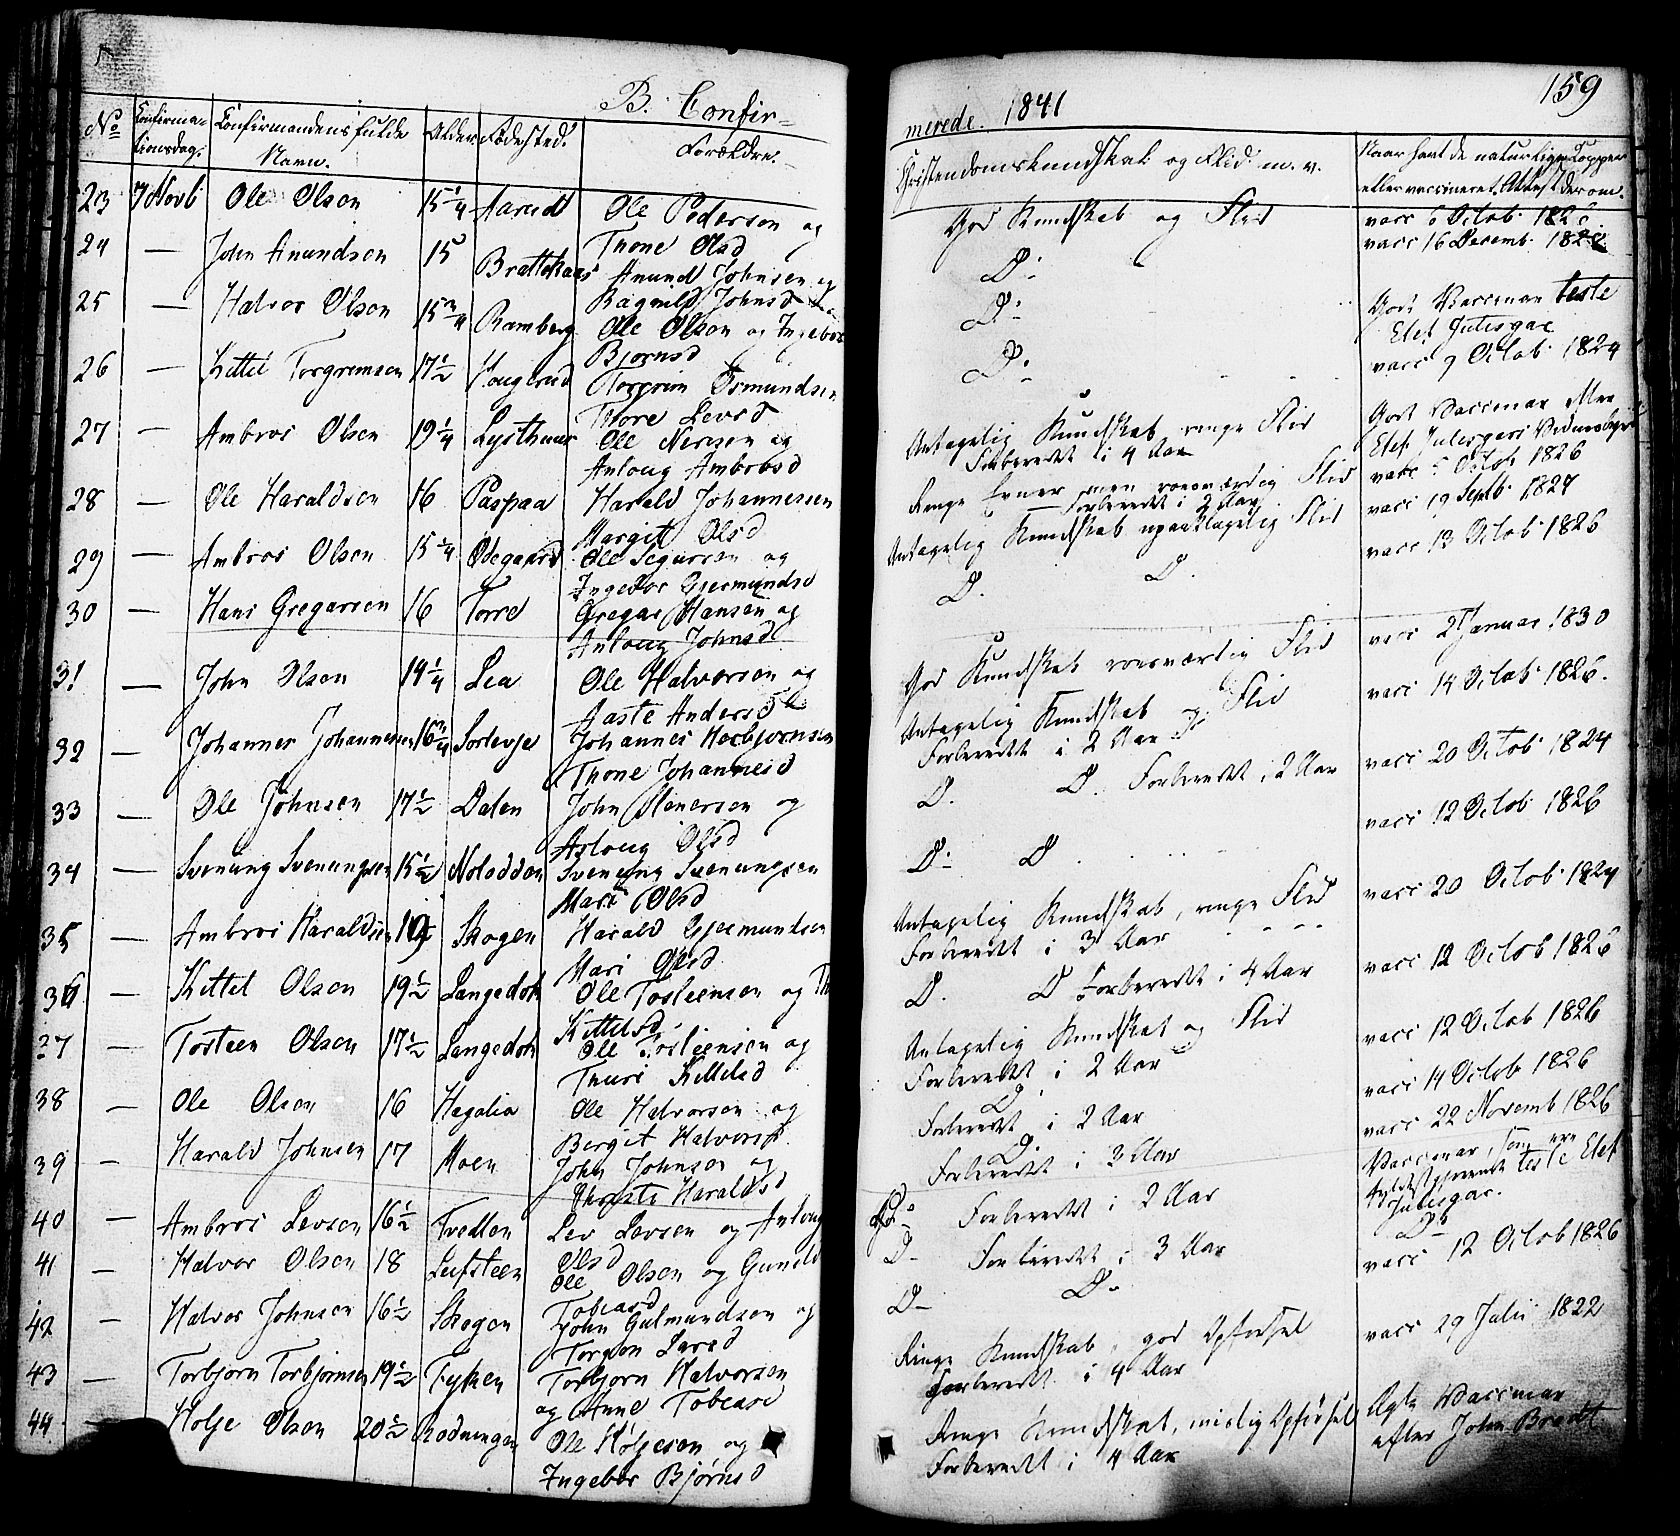 B. Confir=
No
Confirma-
tionsdag.
Confirmandens fulde
Navn.
Alder
Fødested.
Forældre.
23 7 Novb Ole Olsen 15 1/4 Ole Pedersen og
Thone Olsd
24 — John Amundsen 15
Anund Johnsen og
25 — Halvor Olsen 15 3/4 Ramberg Ragnild Johnsd
Ole Olsen og Ingebor
Bjørnsd
26 — Kittil Torgrimsen 17 1/2 Torgrim Osmundsen
Thore Levsd
27 — Ambros Olsen 19 1/4 Lysthuus Ole Nirisen og
Anloug Ambrosd
28 — Ole Haraldsen 16 Paspaa Harald Johannessen
Margit Olsd
29 — Ambros Olsen 15 1/4 Ødegaard Ole Segursen og
Ingebor Gjermundsd
30 — Hans Gregarsen 16 Torre Gregar Hansen og
Anloug Johnsd
31 — John Olsen 14 1/4 Lea Ole Halvorsen og
Aaste Andersd
32 — Johannes Johannesen 16 3/4 Sorlevje Johannes Herbjornsen
Thone Johannesd
33 — Ole Johnsen 17 1/2 Dalen John og
Asloug Olsd
34 — Svenung Svenungsen 15 1/2 Notoddon Svenung Svenungsen
Mari Olsd
35 — Ambros Haraldsen 19 Skogen Harald Gjermundsen
Mari Olsd
36 — Kittel Olsen 19 1/2 Langedok Ole Tosteensen og Th
Kittelsd.
37 — Tosteen Olsen 17 1/2 Langedok Ole Tosteensen og
Thuri Kittelsd
38 — Ole Olsen 16 Hagalia Ole Halvorsen og
Bergit Halvorsd.
39 — Harald Johnsen 17 Moen John Johnsen og
Haraldsd
40 — Ambros Levsen 16 1/2 Tvedten Lev Levsen og Anloug
Olsd
41 — Halvor Olsen 18 Lufsteen Ole Olsen og Gunild
Tobiasd
42 — Halvor Johnsen 16 1/2 Skogen John Gulmundsen og
Torgon Larsd
43 — Torbjorn Torbjornsen 19 1/2 Tyken Torbjorn Halvorsen
og Anne Tobiasd
44 — Holje Olsen 20 1/2 Rodningen Ole Høljeson og
Ingebor Bjørnsd
159
merede. 1841
Christendomskundskab og Flid m. v.
Naar havt de naturlige Kopper
eller vaccineret. Attest derom.
God Kundskab og Flid vacc 6 Octob. 182
vacc 16 Decemb. 182
D:
D: God Vaccinar teste
Elef Julisgar
D: vacc 9 Octob. 1824
Antagelig Kundskab ringe Flid God Vaccinar efter
Forberedt i 4 Aar Elef Julisgars
Ringe Evner men roesværdig Flid vacc 5 Octob 1826
Forberedt i 2 Aar
Antagelig Kundskab upaaklagelig Flid vacc 19 Septb 1827
D. D. vacc 13 Octob 1826
God Kundskab roesværdig Flid vacc 2 Januar 1830
Antagelig Kundskab og Flid vacc 14 Octob 1826.
Forberedt i 2 Aar
D. D. Forberedt i 2 Aar vacc 20 Octob 1824
D: D vacc 12 Octob 1826
Antagelig Kundskab, ringe Flid vacc 20 Octob. 1824
Forberedt i 3 Aar
D. D Forberedt i 4 Aar vacc 12 Octob 1826
Antagelig Kundskab og Flid vacc 12 Octob 1826
Forberedt i 2 Aar
D. vacc 14 Octob 1826
Forberedt i 2 Aar
D. vacc 22 Novemb 1826
Forberedt i 3 Aar
Forberedt i 2 Aar Vaccinar, som
teste Elef
Julisgar.
D- Forberedt i 3 Aar Do
D- D- vacc 12 Octob 1826
Ringe Kundskab, god Opførsel vacc 29 Julii 1822
Forberedt i 4 Aar
Ringe Kundskab, mislig Opførsel Vaccinar
Forberedt i 4 Aar efter John Bredt